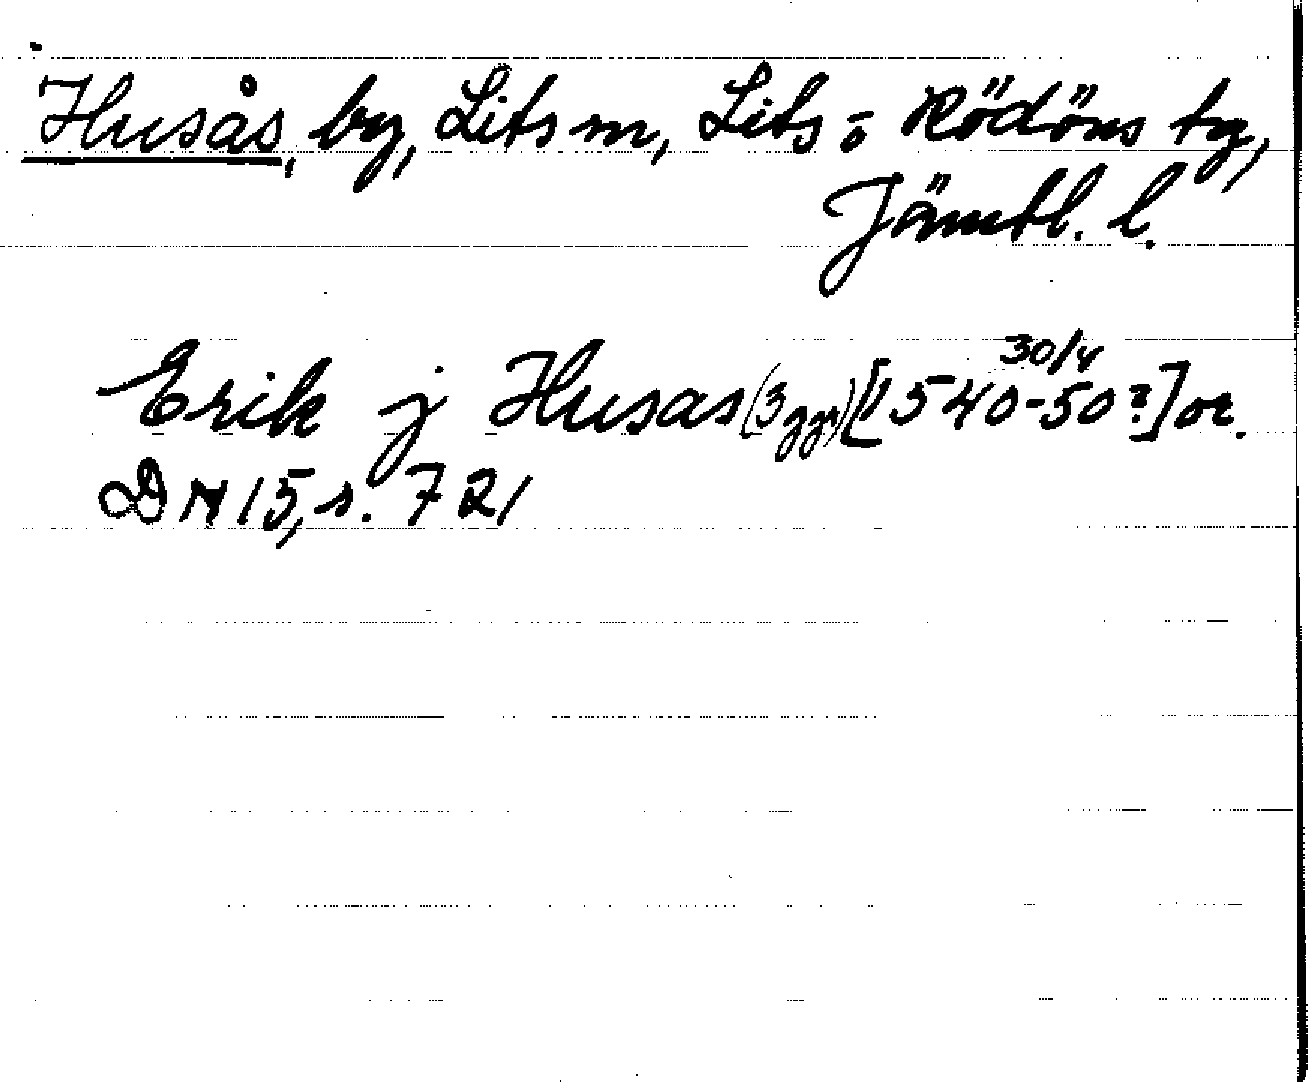 Husås, by, Lits m, Lits o Rödöns tg,
Jämtl. l.
Erik j Husas (3 ggr) [1540-50?] 30/4 or.
DN 15, s. 721